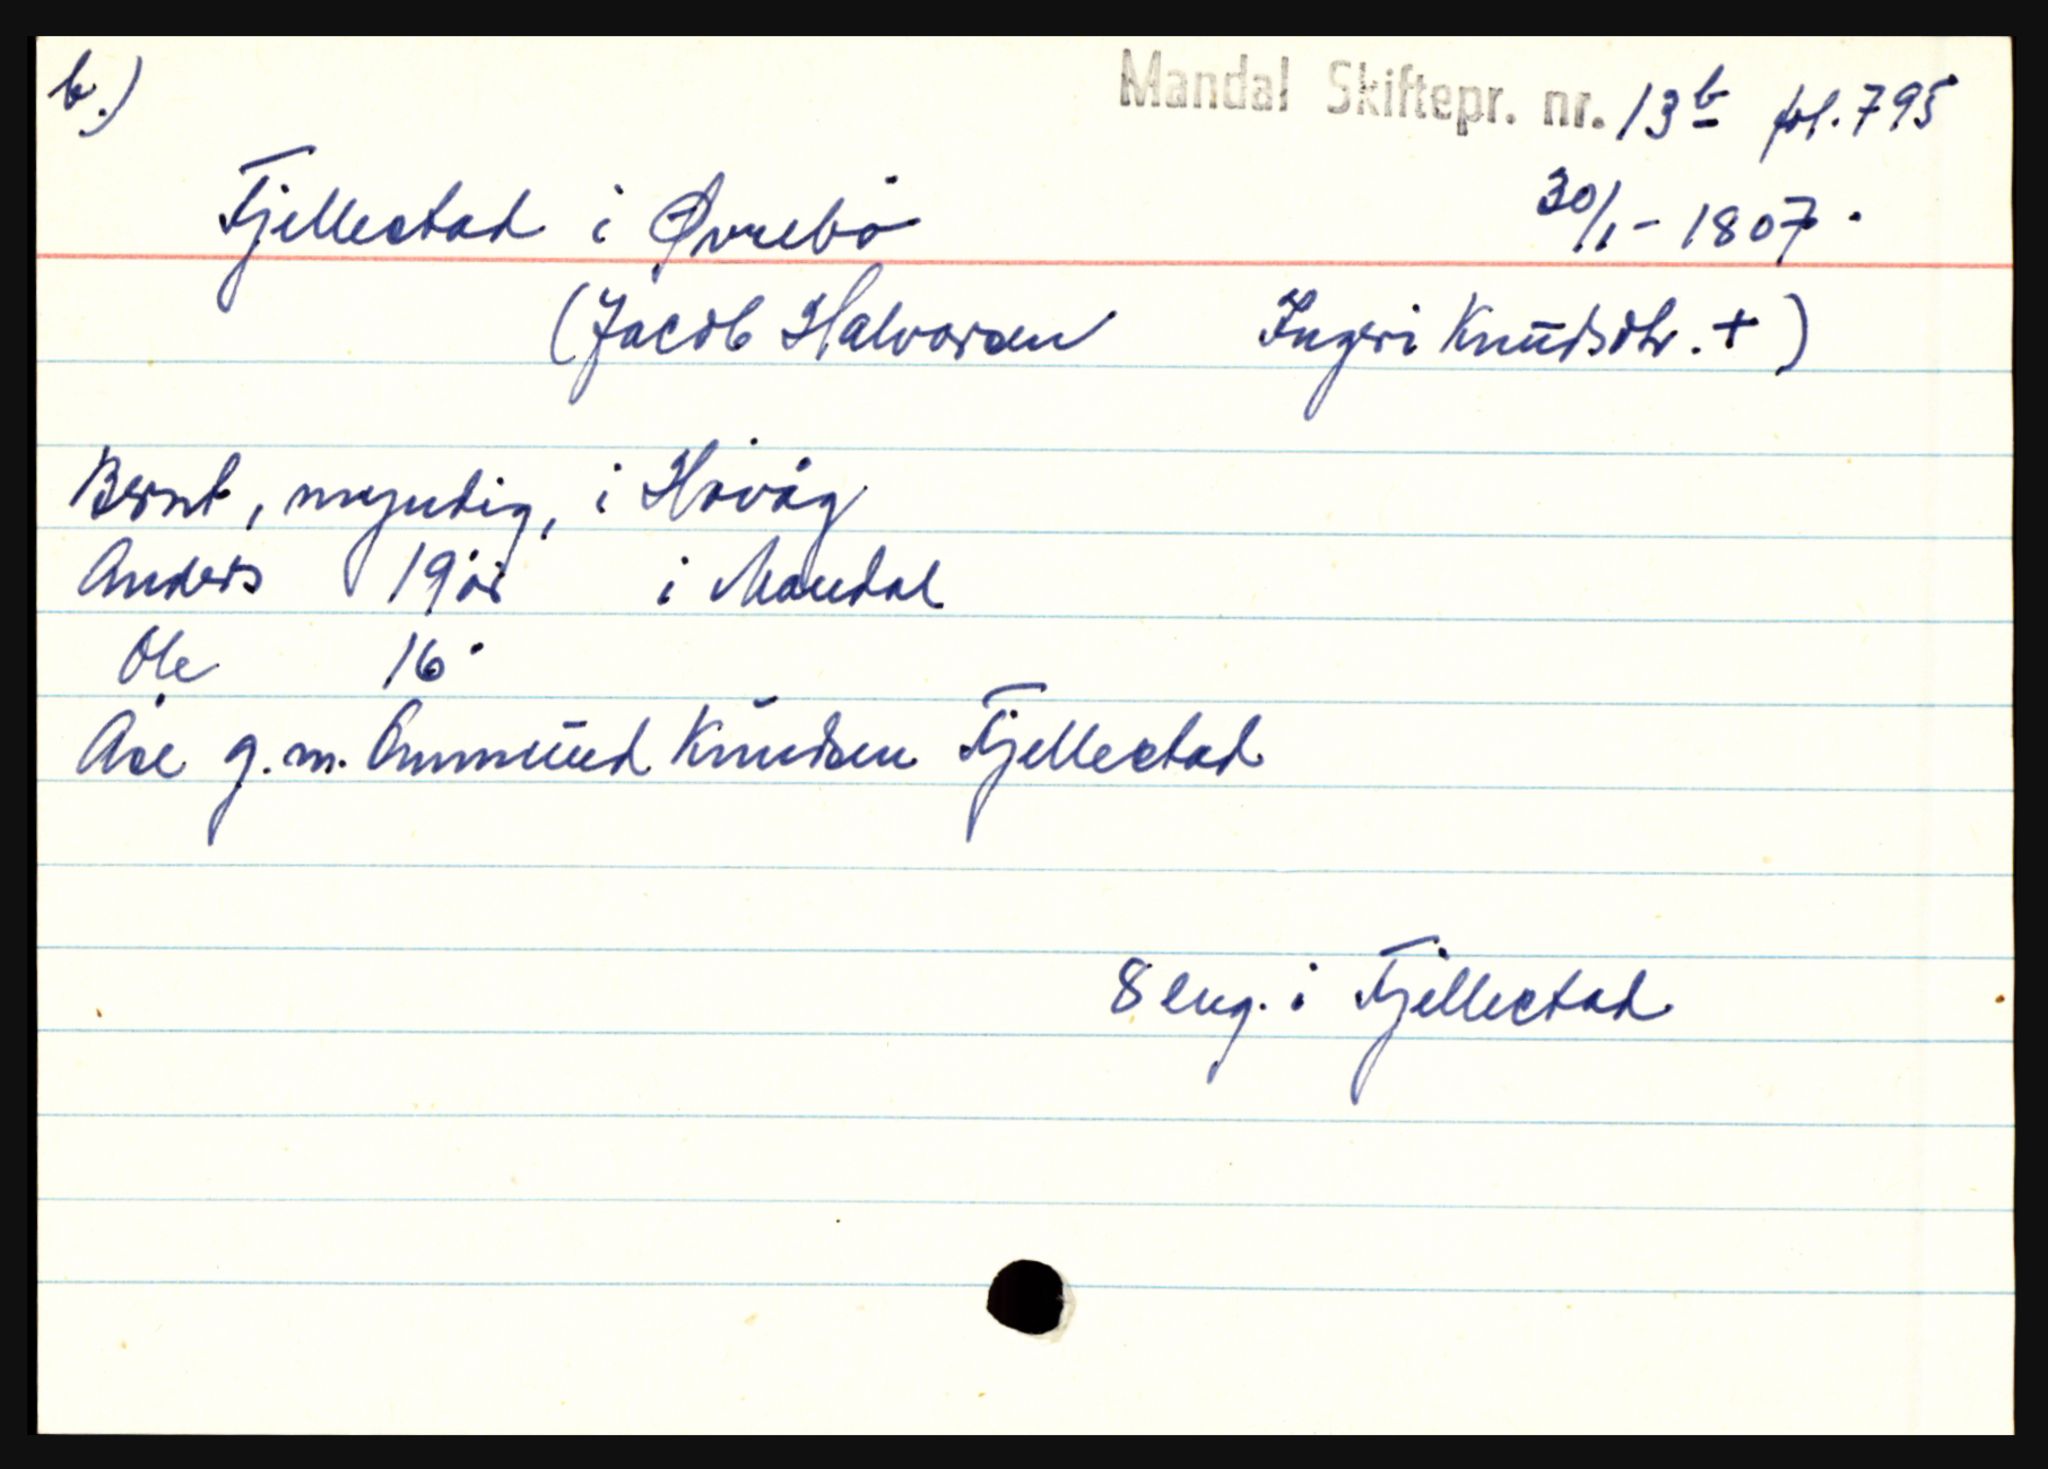 b.)
Mandal Skiftepr. nr. 13b fol. 795
Fjellestad i Øvrebö
30/1-1807.
(Jacob Halvorsen Ingeri Knudsdtr. +)
Bernt, myndig, i Hövåg
Anders 19 år i Mandal
Ole 16
Åse g.m. Ommund Knudsen Fjellestad
8 eng. i Fjellestad